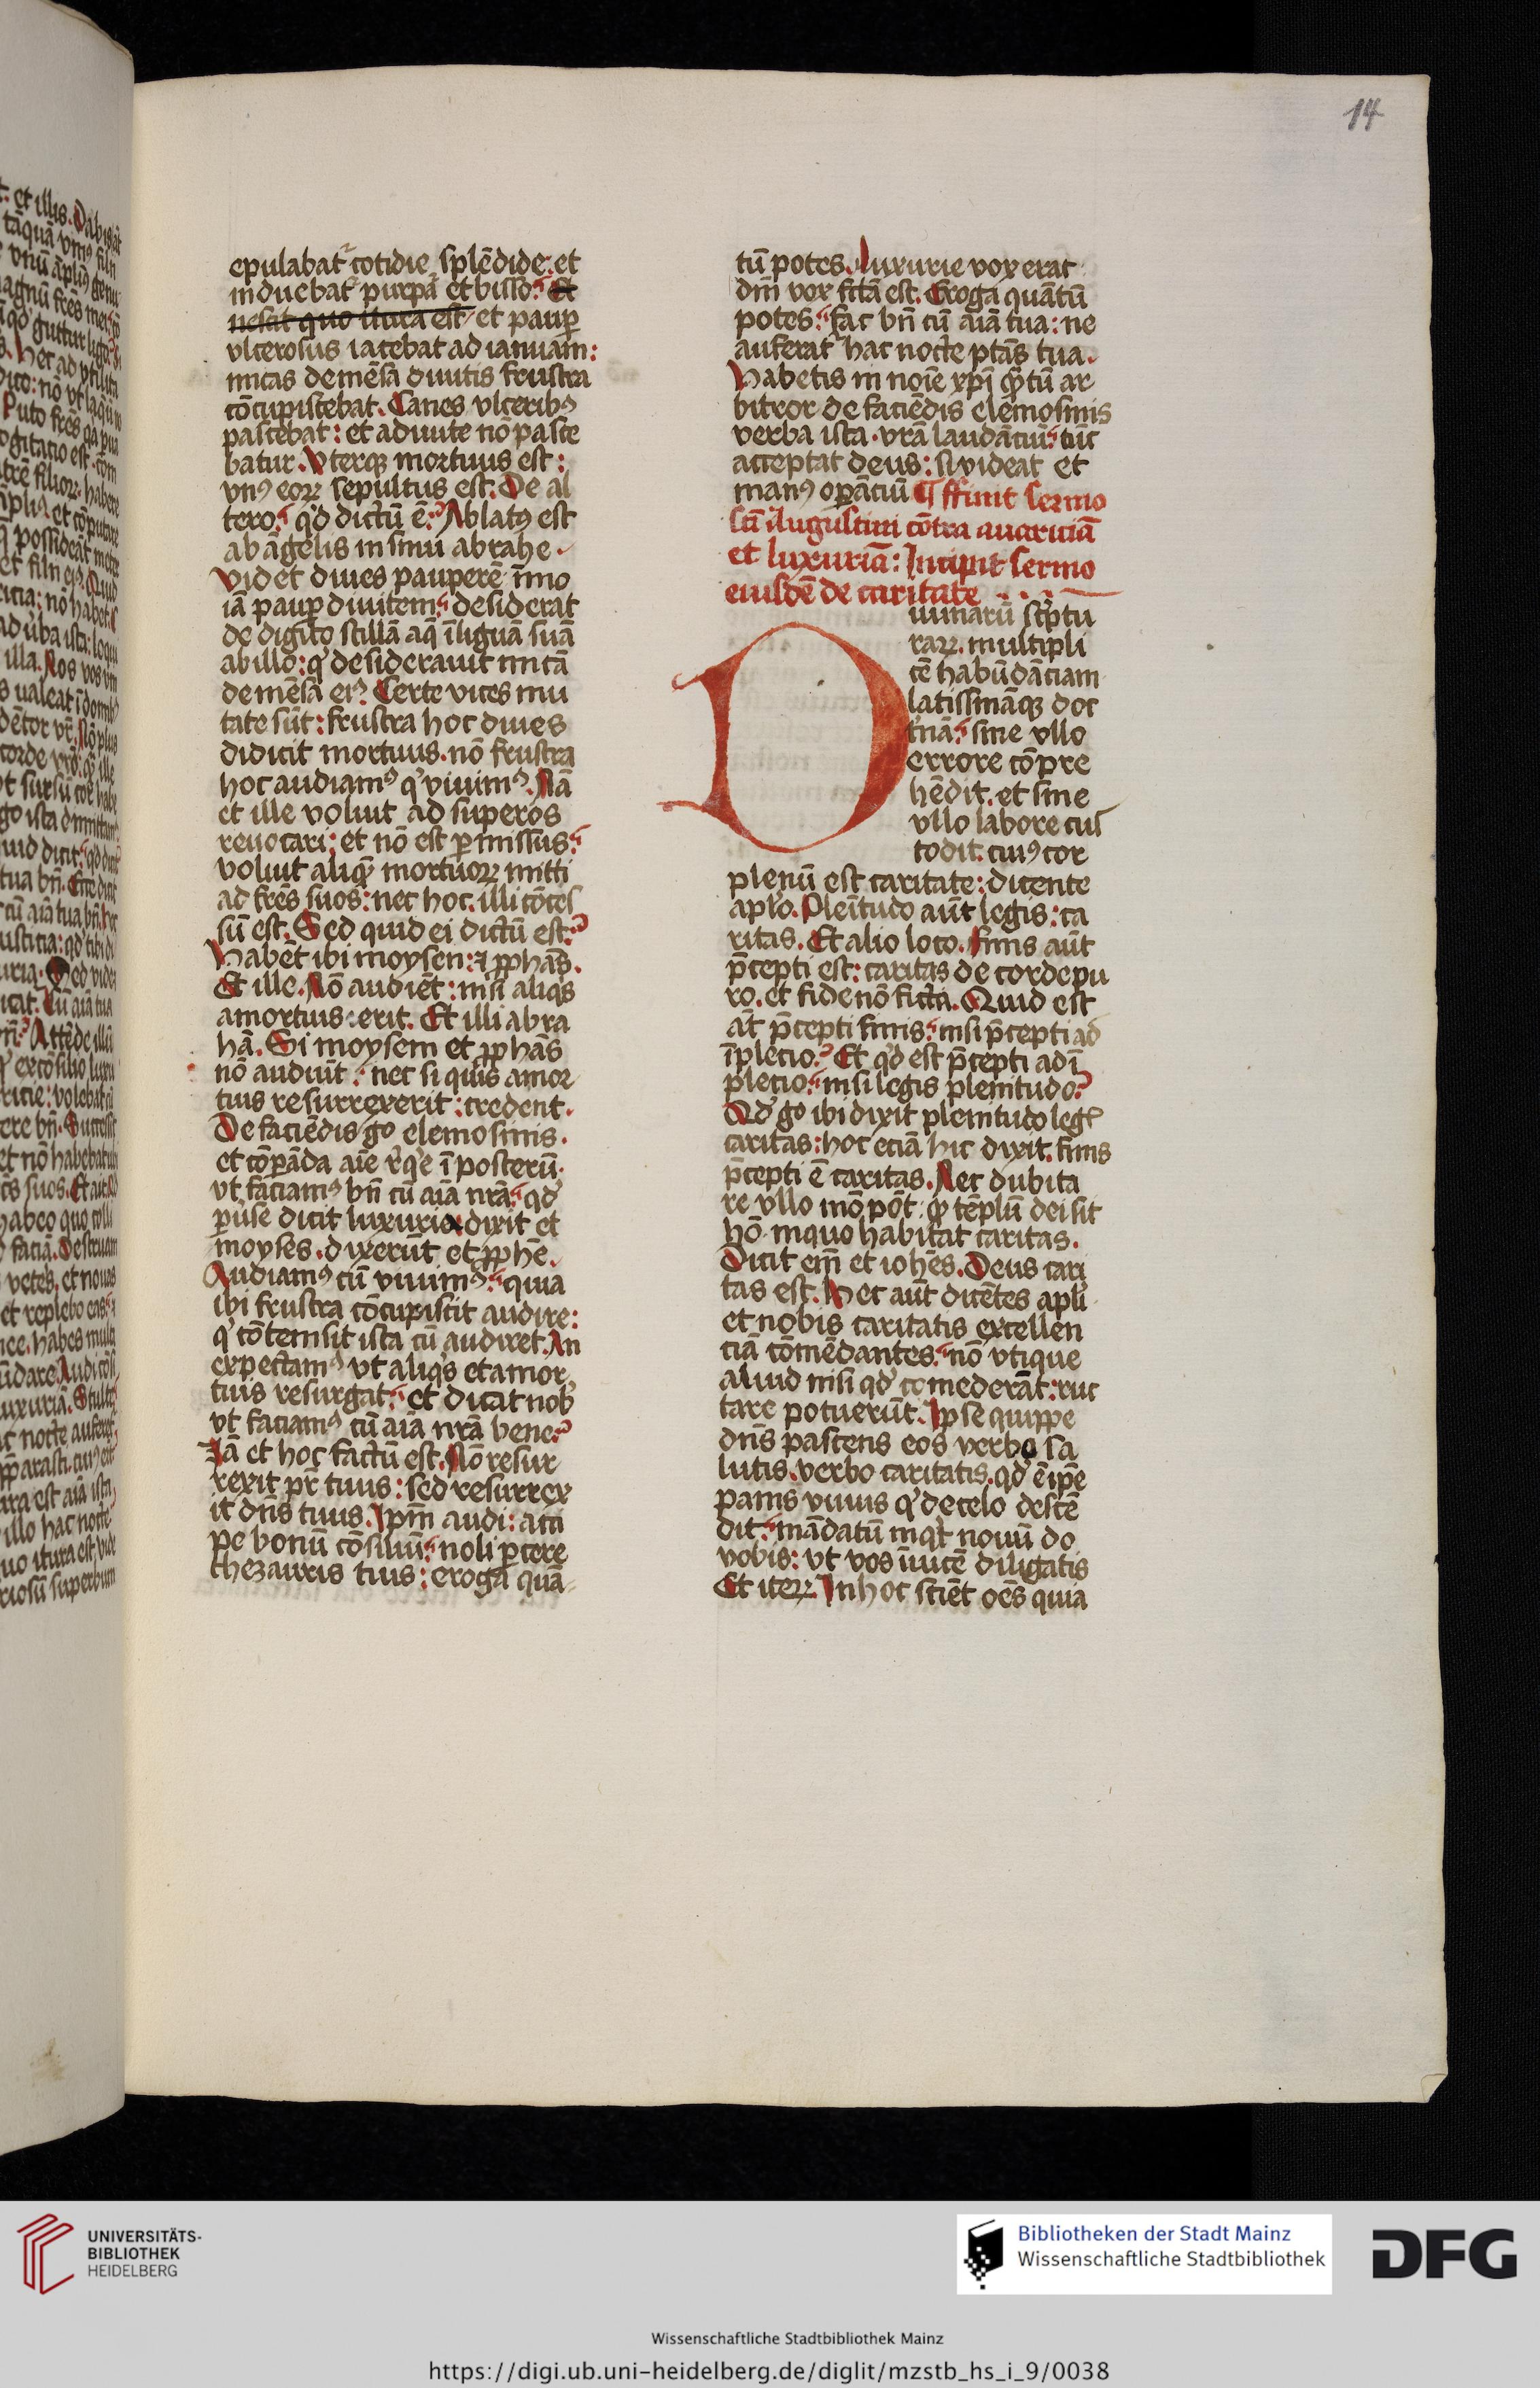 14
epulabat᷑ cotidie splēdide: et
induebat᷑ purpa᷑ et bisso: Et
nescit quo itura est et paup̲
vlcerosus iacebat ad ianuam:
micas de mēsa diuitis frustra
cōcupiscebat. Canes vlceribꝰ
pascebat: et a diuite nō pasce
batur. Vterqꝫ mortuus est:
vnꝰ eoꝝ sepultus est. De al
tero: qd̓ dictū ē? Ablatꝰ est
ab āgelis in sinū abrahe.
Videt diues pauperē īmo
iā paup̲ diuitem: desiderat
de digito stillā aq̄ ī liguā suā
ab illo: q̓ desiderauit micā
de mēsa eiꝰ. Certe vices mu
tate sūt: frustra hoc diues
didicit mortuus. nō frustra
hoc audiamꝰ q̓ viuimꝰ. Nā
et ille voluit ad superos
reuocari: et nō est p̲missus:
voluit aliq̄ mortuoꝝ mitti
ad frēs suos: nec hoc illi cōces
sū est. Sed quid ei dictū est?
Habēt ibi moysen: ⁊ ꝓphās.
Et ille. Nō audiēt: nisi aliq̓s
a mortuis ierit. Et illi abra
hā. Si moysem et ꝓphās
nō audiūt: nec si quis a mor
tuis resurrexerit: credent.
De faciēdis g̊ elemosinis.
et cōpāda aīe req̓e ī posterū.
vt faciamꝰ bn̄ cū aīa nrā: qd̓
p̲ uise dicit luxurie dixit et
moyses. dixerūt et ꝓphē.
Audiamꝰ cū viuimꝰ: quia
ibi frustra cōcupiscit audire:
q̓ cōtemsit ista cū audiret. An
expectamꝰ vt aliq̓s et a mor
tuis resurgat: et dicat nob̓
vt faciamꝰ cū aīa nrā bene?
Iā et hoc factū est. Nō resur
rexit pr̄ tuus: sed resurrex
it dn̄s tuus. Ipm̄ audi: acci
pe bonū cōsiliū: noli p̲cere
thezauris tuis: eroga quā
tū potes. Luxurie vox erat
dn̄i vox fc̄tā est. Eroga quātū
potes: fac bn̄ cū aīa tua: ne
auferat᷑ hac nocte ptās tua.
Habetis in noīe xp̄i q̄tū ar
bitror de faciēdis elēmosinis
verba ista. vrā laudāciū: tūc
acceptat deus: si videat et
manꝰ op̲āciū ¶ ffinit sermo
sc̄i Augustini cōtra auariciā
et luxuriā: Incipit sermo
eiusdē de caritate
Diuinarū sc̓ptu
raꝝ. multipli
cē habūdāciam
latissimāqꝫ doc
t̓nā: sine vllo
errore cōpre
hēdit. et sine
vllo labore cus
todit: cuiꝰ cor
plenū est caritate: dicente
aplo̅. Plenitudo aūt legis: ca
ritas. Et alio loco. Finis aūt
p̄cepti est: caritas de corde pu
ro. et fide nō ficta. Quid est
āt p̄cepti finis: nisi p̄cepti ad
īplecio? Et qd̓ est p̄cepti adī
plecio: nisi legis plenitudo?
Qd̓ g̊ ibi dixit plenitudo legꝭ
caritas: hoc eciā hic dixit. finis
p̄cepti ē caritas. Nec dubita
re vllo mō pōt: q̄ tēplū dei sit
hō in quo habitat caritas.
Dicit em̄ et iohēs. Deus cari
tas est. Hec aūt dicētes apl̓i
et nobis caritatis excellen
ciā cōmēdantes: nō vtique
aliud nisi qd̓ comederāt: ruc
tare potuerūt. Ipse quippe
dn̄s pascens eos verbo sa
lutis. verbo caritatis. qd̓ ē ipē
panis viuus q̓ de celo descē
dit: mādatū inqt̓ nouū do
vobis: vt vos īuicē diligatis
Et iteꝝ. In hoc sciēt oēs quia
UNIVERSITÄTS-
BIBLIOTHEK
HEIDELBERG
Bibliotheken der Stadt Mainz
Wissenschaftliche Stadtbibliothek
DFG
Wissenschaftliche Stadtbibliothek Mainz
https://digi.ub.uni-heidelberg.de/diglit/mzstb_hs_i_9/0038